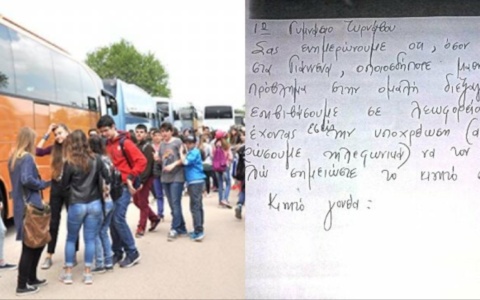 1ο Γυμνάσιο Τυρνάβου
Σας ενημερώνουμε οτι, όσον
στα Γιάννενα, οποιοσδήποτε μαθη
πρόβλημα στην ομαλή διεξαγ
επιβιβάσουμε σε λεωφορείο
έχοντας εσείς την υποχρέωση (α
ώσουμε τηλεφωνικά) να τον
λώ σημειώστε το κινητό σ
Κινητό γονέα: